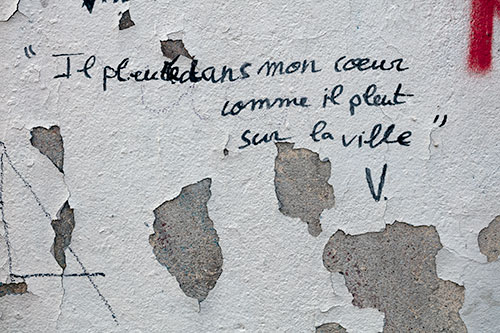 " Il pleut dans mon coeur
comme il pleut
sur la ville "
V.